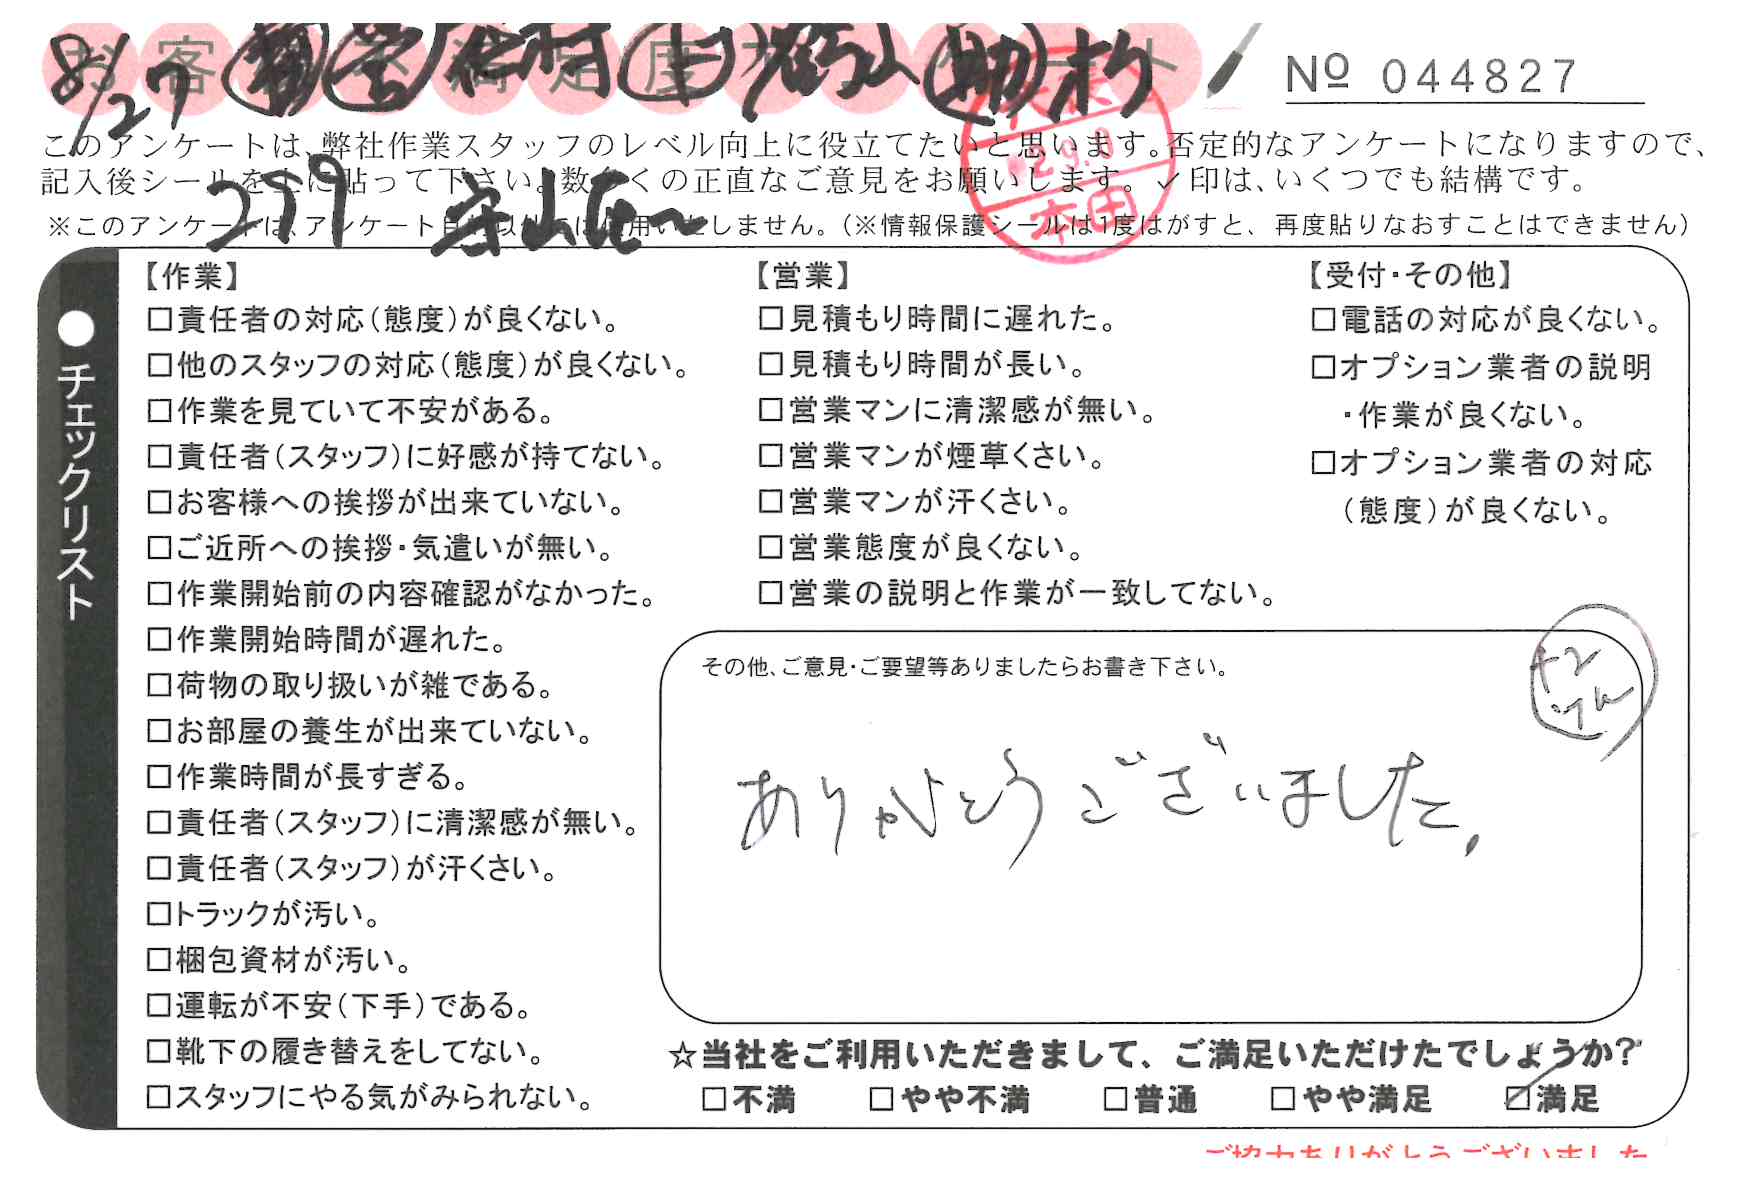 お客様不満足度アンケート
8/27
№ 044827
このアンケートは、弊社作業スタッフのレベル向上に役立てたいと思います。否定的なアンケートになりますので、
記入後シールを上に貼って下さい。数多くの正直なご意見をお願いします。✓印は、いくつでも結構です。
279 守山区〜
※このアンケートは、アンケート目的以外には使用いたしません。(※情報保護シールは1度はがすと、再度貼りなおすことはできません)
本田
●チェックリスト
【作業】
□責任者の対応(態度)が良くない。
□他のスタッフの対応(態度)が良くない。
□作業を見ていて不安がある。
□責任者(スタッフ)に好感が持てない。
□お客様への挨拶が出来ていない。
□ご近所への挨拶・気遣いが無い。
□作業開始前の内容確認がなかった。
□作業開始時間が遅れた。
□荷物の取り扱いが雑である。
□お部屋の養生が出来ていない。
□作業時間が長すぎる。
□責任者(スタッフ)に清潔感が無い。
□責任者(スタッフ)が汗くさい。
□トラックが汚い。
□梱包資材が汚い。
□運転が不安(下手)である。
□靴下の履き替えをしてない。
□スタッフにやる気がみられない。
【営業】
□見積もり時間に遅れた。
□見積もり時間が長い。
□営業マンに清潔感が無い。
□営業マンが煙草くさい。
□営業マンが汗くさい。
□営業態度が良くない。
□営業の説明と作業が一致してない。
【受付・その他】
□電話の対応が良くない。
□オプション業者の説明
・作業が良くない。
□オプション業者の対応
(態度)が良くない。
その他、ご意見・ご要望等ありましたらお書き下さい。
ありがとうございました。
☆当社をご利用いただきまして、ご満足いただけたでしょうか?
□不満 □やや不満 □普通 □やや満足 ☑満足
ご協力ありがとうございました